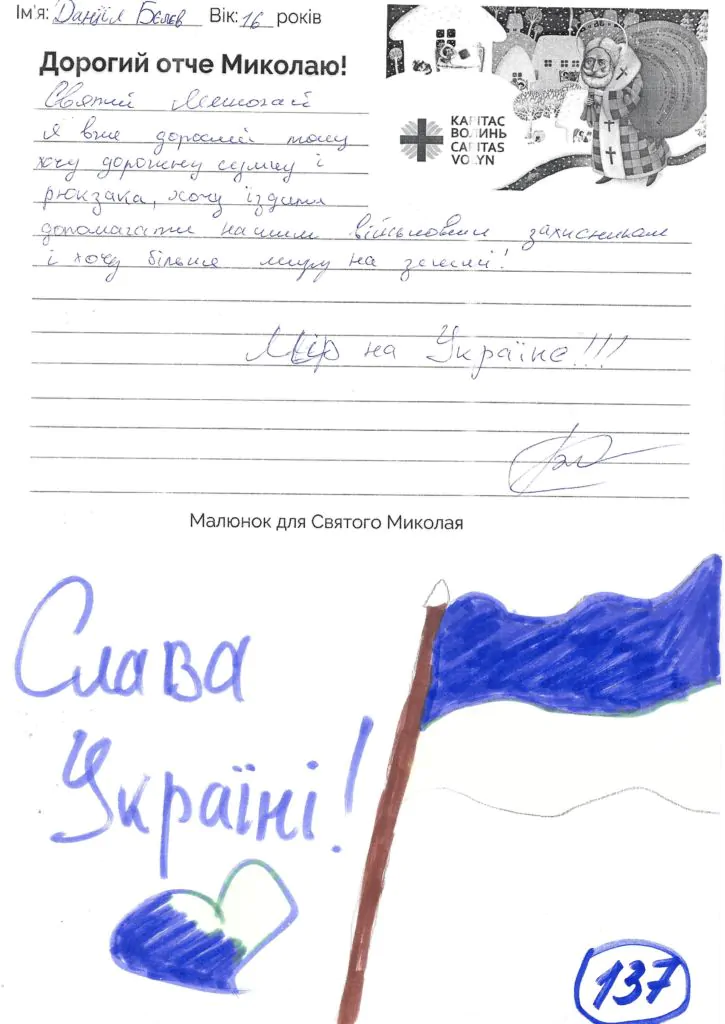 Ім'я: Данііл Бєлєв Вік: 16 років
Дорогий отче Миколаю!
Святий Миколай
Я вже дорослий тому
хочу дорожну сумку і
рюкзака, хочу їздити
допомагати нашим військовим захисникам
і хочу більше миру на землі!
Мір на Україне!!!
Малюнок для Святого Миколая
КАРІТАС
ВОЛИНЬ
CARITAS
VOLYN
Слава
Україні!
137